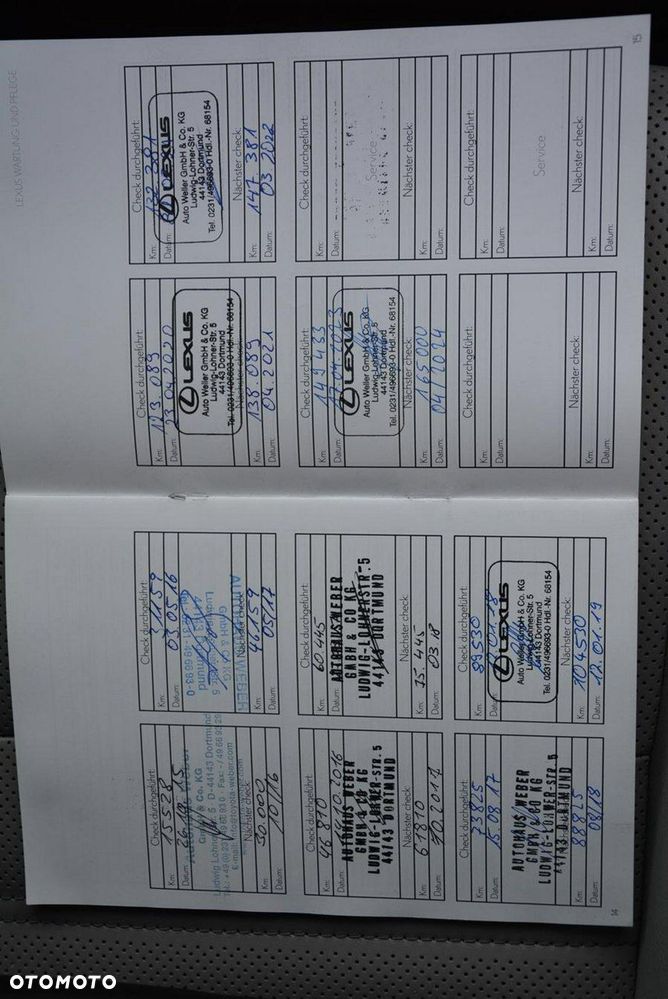 Check durchgeführt:
Km: 15528
Datum:
Autohaus Weber
GmbH & Co. KG
Ludwig Lohner Str. 5 D-44143 Dortmund
Nächster check:
Km: 30.000
Datum: 10/16
Check durchgeführt:
Km: 31159
Datum: 03.05.16
AUTOHAUS WEBER
GMBH & CO. KG
Nächster check:
Km: 46159
Datum: 05/17
Check durchgeführt:
Km: 46810
Datum:
AUTOHAUS WEBER
GMBH & CO KG
LUDWIG-LOHNER-STR. 5
44143 DORTMUND
Nächster check:
Km: 61810
Datum: 10.2017
Check durchgeführt:
Km: 60445
Datum:
AUTOHAUS WEBER
GMBH & CO KG
LUDWIG-LOHNER-STR. 5
44143 DORTMUND
Nächster check:
Km: 75.445
Datum: 03 18
Check durchgeführt:
Km: 73825
Datum: 15.08.17
AUTOHAUS WEBER
GMBH & CO KG
LUDWIG-LOHNER-STR. 5
44143 DORTMUND
Km: 88825
Datum: 08/18
Check durchgeführt:
Km: 89530
Datum:
LEXUS
Auto Weller GmbH & Co. KG
Ludwig-Lohner-Str. 5
44143 Dortmund
Tel. 0231/496693-0 Hdl.-Nr. 68154
Km: 104530
Datum: 12.01.19
14
LEXUS WARTUNG UND PFLEGE
Check durchgeführt:
Km: 123.089
Datum: 23.04.2020
LEXUS
Auto Weller GmbH & Co. KG
Ludwig-Lohner-Str. 5
44143 Dortmund
Tel. 0231/496693-0 Hdl.-Nr. 68154
Nächster check:
Km: 138.089
Datum: 04.2021
Check durchgeführt:
Km: 132 381
Datum:
LEXUS
Auto Weller GmbH & Co. KG
Ludwig-Lohner-Str. 5
44143 Dortmund
Tel. 0231/496693-0 Hdl.-Nr. 68154
Nächster check:
Km: 147 381
Datum: 03 2022
Check durchgeführt:
Km: 149433
Datum: 17.04.2023
LEXUS
Auto Weller GmbH & Co. KG
Ludwig-Lohner-Str. 5
44143 Dortmund
Tel. 0231/496693-0 Hdl.-Nr. 68154
Nächster check:
Km: 165000
Datum: 04/2024
Check durchgeführt:
Km:
Datum:
Service
Nächster check:
Km:
Datum:
Check durchgeführt:
Km:
Datum:
Nächster check:
Km:
Datum:
Check durchgeführt:
Km:
Datum:
Service
Nächster check:
Km:
Datum:
15
OTOMOTO